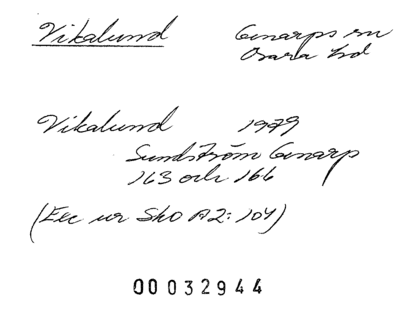 Vikalund Genarps sn
Bara hd
Vikalund 1979
Sundström Genarp
163 och 166
(Exc ur SkO A2:104)
00032944